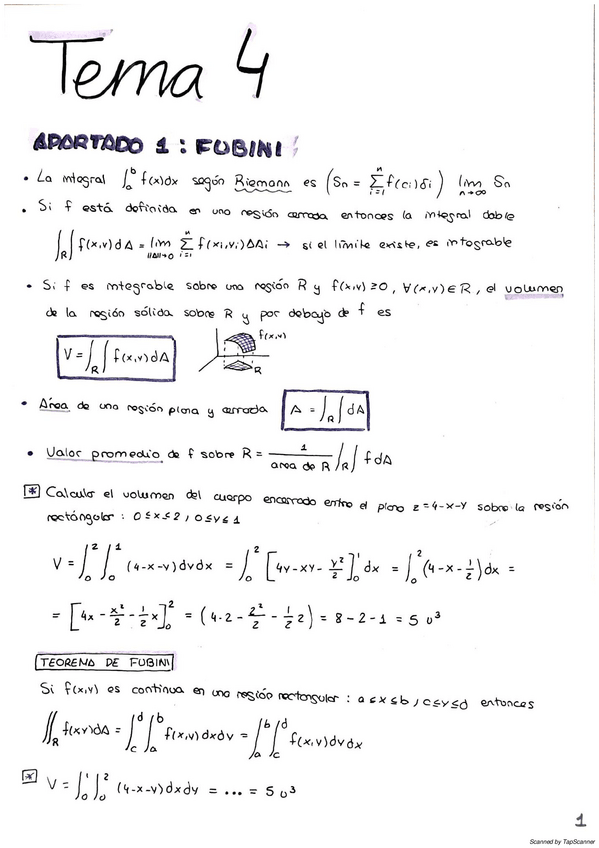 Tema 4
APARTADO 1 : FUBINI
• La integral ∫_a^b f(x)dx según Riemann es (Sn = Σ_{i=1}^n f(ci)δi) lim_{n→∞} Sn
• Si f está definida en una región cerrada entonces la integral doble
∫_R∫ f(x,y)dA = lim_{||Δ||→0} Σ_{i=1}^n f(xi,yi)ΔAi → si el límite existe, es integrable
• Si f es integrable sobre una región R y f(x,y) ≥0, ∀(x,y)∈R, el volumen
de la región sólida sobre R y por debajo de f es
V = ∫_R∫ f(x,y)dA
f(x,y)
R
• Área de una región plana y cerrada A = ∫_R∫ dA
• Valor promedio de f sobre R = 1/(area de R) ∫_R∫ f dA
* Calcular el volumen del cuerpo encerrado entre el plano z=4-x-y sobre la región
rectángular : 0≤x≤2, 0≤y≤1
V = ∫_0^2 ∫_0^1 (4-x-y)dydx = ∫_0^2 [4y-xy-y²/2]_0^1 dx = ∫_0^2 (4-x-1/2)dx =
= [4x - x²/2 - 1/2 x]_0^2 = (4·2 - 2²/2 - 1/2 2) = 8-2-1 = 5 u³
TEOREMA DE FUBINI
Si f(x,y) es continua en una región rectangular : a≤x≤b, c≤y≤d entonces
∬_R f(xy)dA = ∫_c^d ∫_a^b f(x,y)dxdy = ∫_a^b ∫_c^d f(x,y)dydx
* V = ∫_0^1 ∫_0^2 (4-x-y)dxdy = ... = 5 u³
1
Scanned by TapScanner